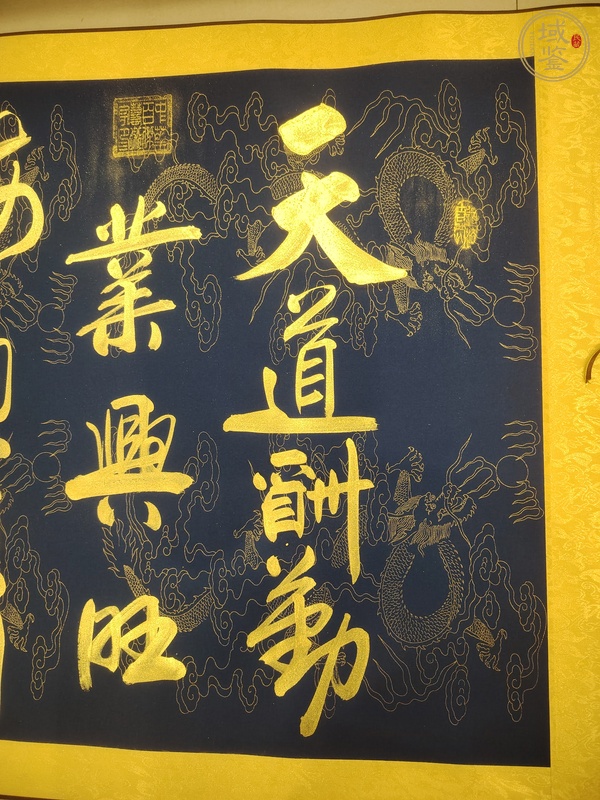 天道酬勤
業興旺
域鉴